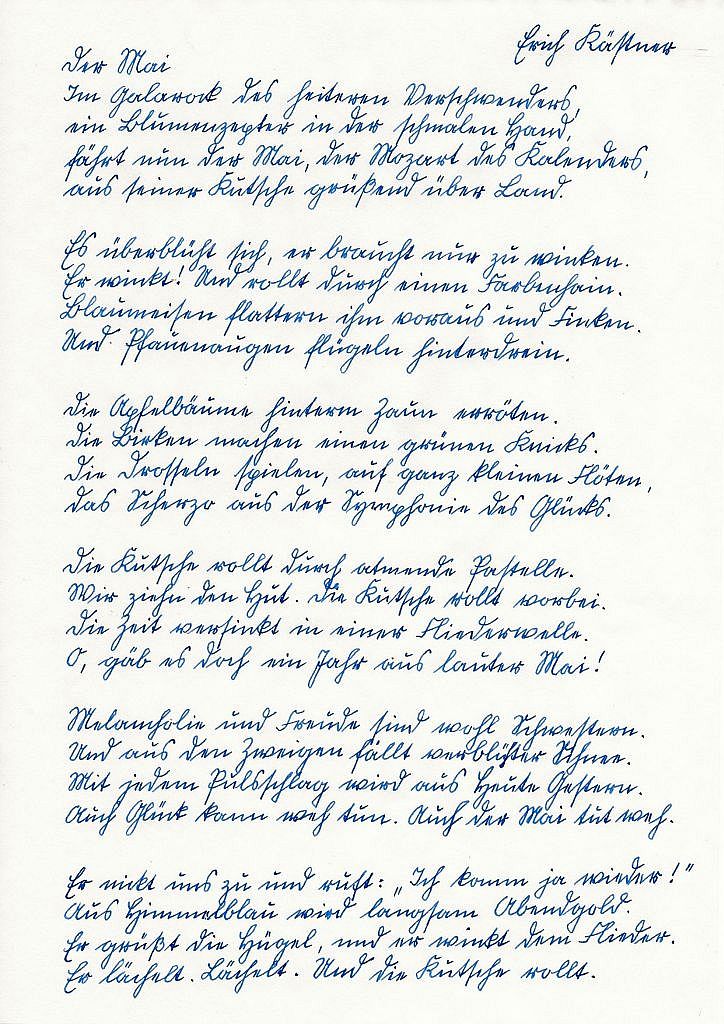 Erich Kästner
Der Mai
Im Galarock des heiteren Verschwenders,
ein Blumenzepter in der schmalen Hand,
fährt nun der Mai, der Mozart des Kalenders,
aus seiner Kutsche grüßend über Land.
Es überblüht sich, er braucht nur zu winken.
Er winkt! Und rollt durch einen Farbenhain.
Blaumeisen flattern ihm voraus und Finken.
Und Pfauenaugen flügeln hinterdrein.
Die Apfelbäume hinterm Zaun erröten.
Die Birken machen einen grünen Knicks.
Die Drosseln spielen, auf ganz kleinen Flöten,
das Scherzo aus der Symphonie des Glücks.
Die Kutsche rollt durch atmende Pastelle.
Wir ziehn den Hut. Die Kutsche rollt vorbei.
Die Zeit versinkt in einer Fliederwelle.
O, gäb es doch ein Jahr aus lauter Mai!
Melancholie und Freude sind wohl Schwestern.
Und aus den Zweigen fällt verblühter Schnee.
Mit jedem Pulsschlag wird aus Heute Gestern.
Auch Glück kann weh tun. Auch der Mai tut weh.
Er nickt uns zu und ruft: „Ich komm ja wieder!"
Aus Himmelblau wird langsam Abendgold.
Er grüßt die Hügel, und er winkt dem Flieder.
Er lächelt. Lächelt. Und die Kutsche rollt.